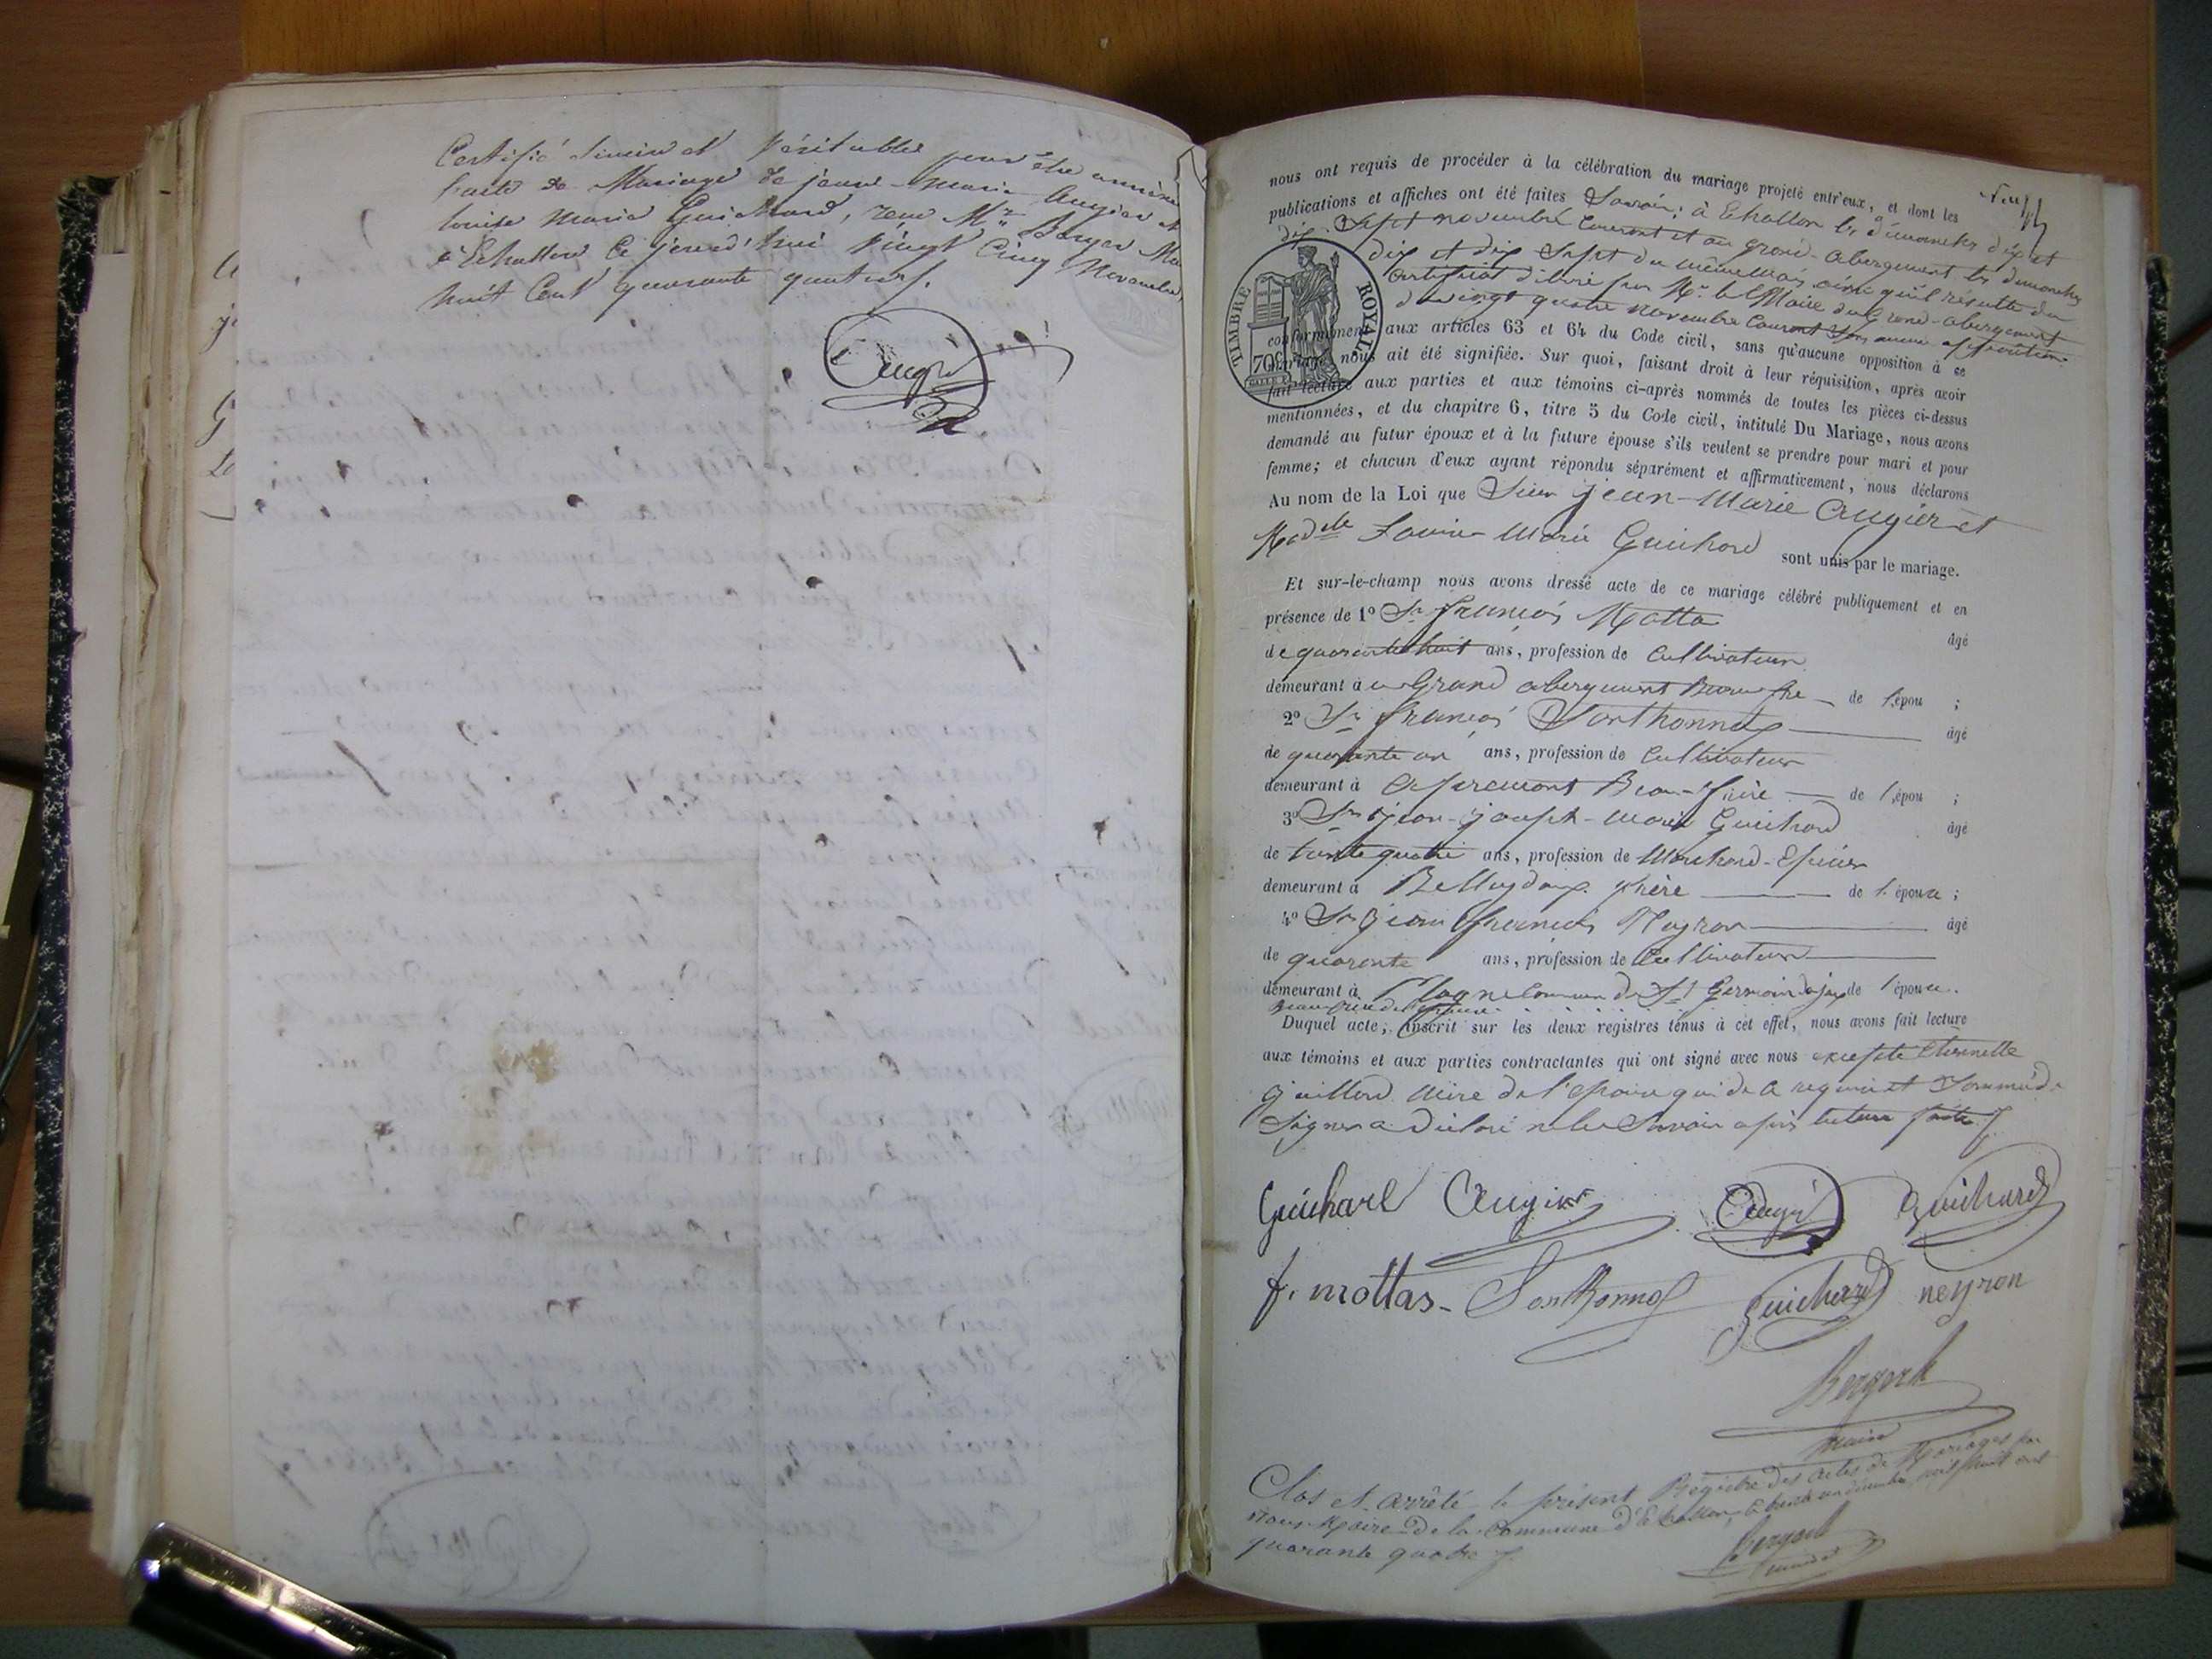 Certifié sincère et Véritable pour être annexé
l'acte de Mariage de jean-marie Augier et
louise marie Guichard, reçu Mr Berger Ma
à Echallon Ce jourd'hui Vingt Cinq Novembre
huit Cent quarante quatre
Augier
nous ont requis de procéder à la célébration du mariage projeté entr'eux, et dont les
publications et affiches ont été faites Savoir; à Echallon les dimanches dix et
dix-Sept novembre Courant et au grand-abergement les dimanches
dix et dix Sept du même mois, ainsi qu'il résulte du
Certificat délivré par Mr le Maire du Grand-abergement
du vingt quatre novembre Courant Sans aucune opposition
TIMBRE ROYAL
70c
conformément aux articles 63 et 64 du Code civil, sans qu'aucune opposition à ce
mariage nous ait été signifiée. Sur quoi, faisant droit à leur réquisition, après avoir
fait lecture aux parties et aux témoins ci-après nommés de toutes les pièces ci-dessus
mentionnées, et du chapitre 6, titre 5 du Code civil, intitulé Du Mariage, nous avons
demandé au futur époux et à la future épouse s'ils veulent se prendre pour mari et pour
femme; et chacun d'eux ayant répondu séparément et affirmativement, nous déclarons
Au nom de la Loi que Sieur jean-Marie Augier et
Madelle Louise Marie Guichard sont unis par le mariage.
Et sur-le-champ nous avons dressé acte de ce mariage célébré publiquement et en
présence de 1º Sr françois Motta âgé
de quarante huit ans, profession de Cultivateur
demeurant à au Grand abergement Beau frère de l'épou ;
2º Sr françois Sonthonnax âgé
de quarante un ans, profession de Cultivateur
demeurant à Apremont Beau-frère de l'épou ;
3º Sr jean-joseph-Marie Guichard âgé
de trente quatre ans, profession de Marchand-Epicier
demeurant à Belleydoux frère de l'épouse ;
4º Sr jean François Neyron âgé
de quarante ans, profession de Cultivateur
demeurant à Plagne Commune de St Germain de joux de l'épouse.
Beau frère de l'épouse
Duquel acte, inscrit sur les deux registres tenus à cet effet, nous avons fait lecture
aux témoins et aux parties contractantes qui ont signé avec nous excepté
mère de l'épouse qui de ce requise et Sommée de
Signer a Déclaré ne le Savoir après lecture faite
Guichard Augier Augier Guichard
f. mottas Sonthonnax Guichard neyron
Bergeret
maire
Clos et arrêté le présent Régistre des actes de Mariages par
Nous Maire de la Commune d'Echallon, le trente un décembre mil huit cent
quarante quatre
Bergeret
maire